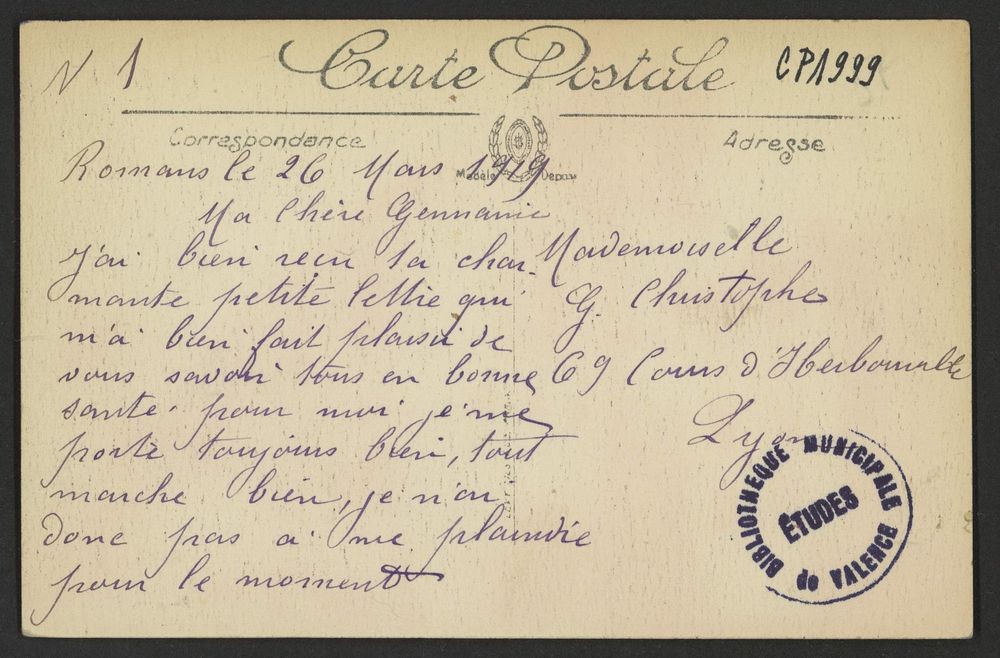 N 1
Carte Postale
CPA999
Correspondance
Adresse
Modèle Déposé
Romans le 26 Mars 1919
Ma Chère Germanie
J'ai bien reçu ta char-
mante petite lettre qui
m'a bien fait plaisir de
vous savoir tous en bonne
santé. pour moi je me
porte toujours bien, tout
marche bien, je n'ai
donc pas à me plaindre
pour le moment
Mademoiselle
G. Christophe
69 Cours d'Herbouville
Lyon
BIBLIOTHEQUE MUNICIPALE
ÉTUDES
de VALENCE